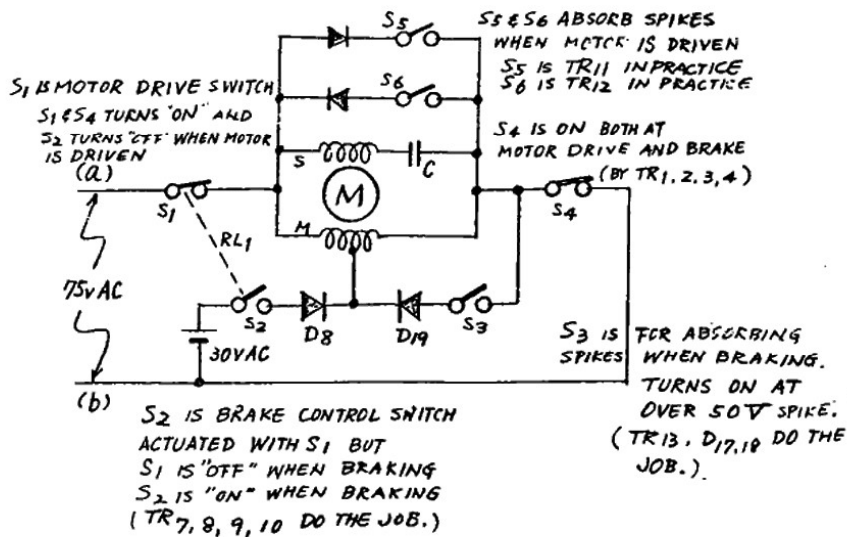 S5
S5 & S6 ABSORB SPIKES
WHEN MOTOR IS DRIVEN
S5 IS TR11 IN PRACTICE
S6 IS TR12 IN PRACTICE
S6
S1 IS MOTOR DRIVE SWITCH
S1 & S4 TURNS "ON" AND
S2 TURNS "OFF" WHEN MOTOR
IS DRIVEN
S4 IS ON BOTH AT
MOTOR DRIVE AND BRAKE
(BY TR1, 2, 3, 4)
S
C
(a)
S1
M
M
S4
RL1
75V AC
S2
D8
D19
S3
30V AC
(b)
S3 IS FOR ABSORBING
SPIKES WHEN BRAKING.
TURNS ON AT
OVER 50V SPIKE.
(TR13, D17,18 DO THE
JOB.)
S2 IS BRAKE CONTROL SWITCH
ACTUATED WITH S1 BUT
S1 IS "OFF" WHEN BRAKING
S2 IS "ON" WHEN BRAKING
(TR7, 8, 9, 10 DO THE JOB.)